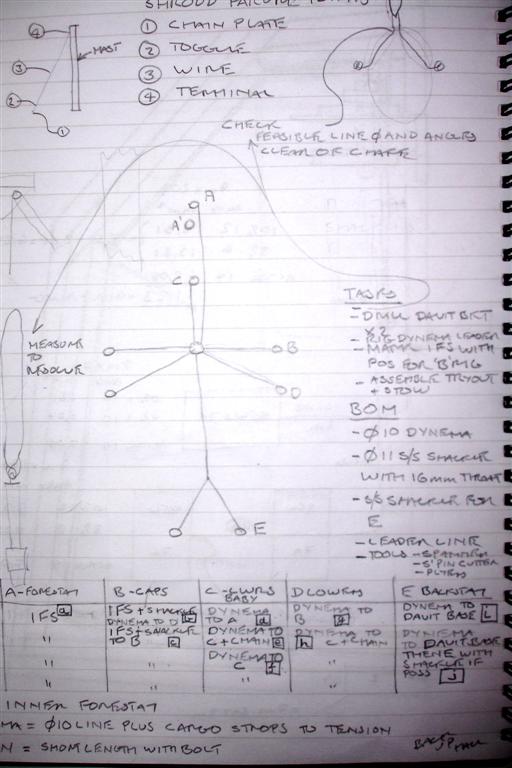 SHROUD FAILURE
① CHAIN PLATE
② TOGGLE
③ WIRE
④ TERMINAL
④
MAST
③
②
①
CHECK
FEASIBLE LINE Ø AND ANGLES
CLEAR OF CHAFE
A
A'
C
MEASURE
TO
B
D
E
TASKS
- DRILL DAVIT BKT
X2
- RIG DYNEMA LEADER
- MARK IFS WITH
POS FOR 'B' RIG
- ASSEMBLE TRYOUT
+ STOW
BOM
- Ø10 DYNEMA
- Ø11 S/S SHACKLE
WITH 16mm THROAT
- S/S SHACKLE FOR
E
- LEADER LINE
- TOOLS - SPANNER
- S'PIN CUTTER
- PLYERS
A-FORESTAY B-CAPS C-LWRS BABY D LOWERS E BACKSTAY
IFS a IFS + SHACKLE DYNEMA TO DYNEMA TO DYNEMA TO
DYNEMA TO D b TO A d B g DAVIT BASE i
" IFS + SHACKLE DYNEMA TO DYNEMA TO DYNEMA
TO B c C + CHAIN e h C + CHAIN TO DAVIT BASE
" " DYNEMA TO " THENE WITH
C f SHACKLE IF
" " " " POSS j
INNER FORESTAY
= Ø10 LINE PLUS CARGO STROPS TO TENSION
= SHORT LENGTH WITH BOLT